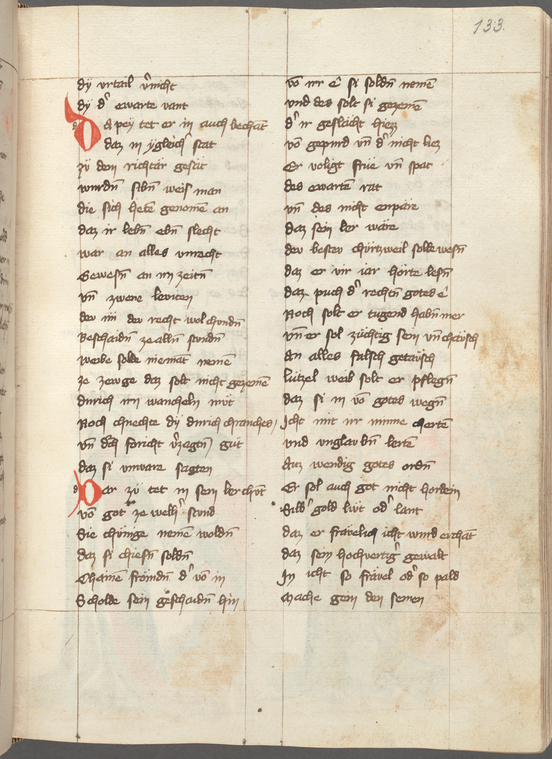 133.
dÿ vrtail v̄nicht
dÿ d' ewarte vant
Da peÿ tet er in auch bechāt
daz in ÿgleich' stat
zü dem richtär gesät
wurdn̄ sibn̄ weis man
die sich hete genomen an
daz ir lebn̄ ebn̄ slecht
war an alles vnrecht
Gewesn̄ an irn zeitn̄
vn̄ zwene leuiten
der in der recht wol chondn̄
Beschaidn̄ ze alln̄ stundn̄
weibe solde niemāt nemē
ze zewge daz solt nicht gezemē
durich irn wancheln müt
Noch chnechte dÿ durich chranches
vn̄ däch foricht v'zagtn̄ güt
daz si vnware sagten
Dar zü tet in sein ler chūt
vō got ze welh' stund
Sie chünige nemē woldn̄
daz si chiesn̄ soldn̄
Chaine främdn̄ d' vō in
Scholde sein geschaidn̄ hin
vō irr ê si soldn̄ nemē
vnd des solt si gezemē
d' ir geslächt hiez
vō gepurd vn̄ d' nicht liez
Er voligt früe vn̄ spat
des ewartē rat
vn̄ des nicht enpäre
daz sein ler wäre
der bester chürtzweil solde wesn̄
daz er vir iar hörte lesn̄
daz puch d' rechtn̄ gotes ê
Noch solt er tugend habn̄ mer
vn̄ er sol züchtig sein vn̄ chäusch
an alles falsch getäusch
lützel weib solt er pflegn̄
daz si in vō gotes wegn̄
Icht mit irr minne chartē
vnd vnglaubn̄ lertē
Auz wendig gotes ordn̄
Er sol auch got nicht hordein
Silb' gold lüt od' lant
daz er frävelich icht wurd erchāt
daz sein hochvertig' gewalt
In icht so frävel od' so pald
Mache gein den seinen